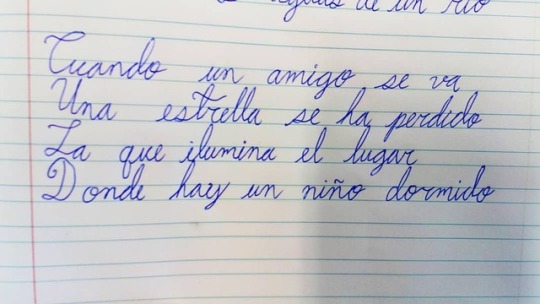 aguas de un río
Cuando un amigo se va
Una estrella se ha perdido
La que ilumina el lugar
Donde hay un niño dormido